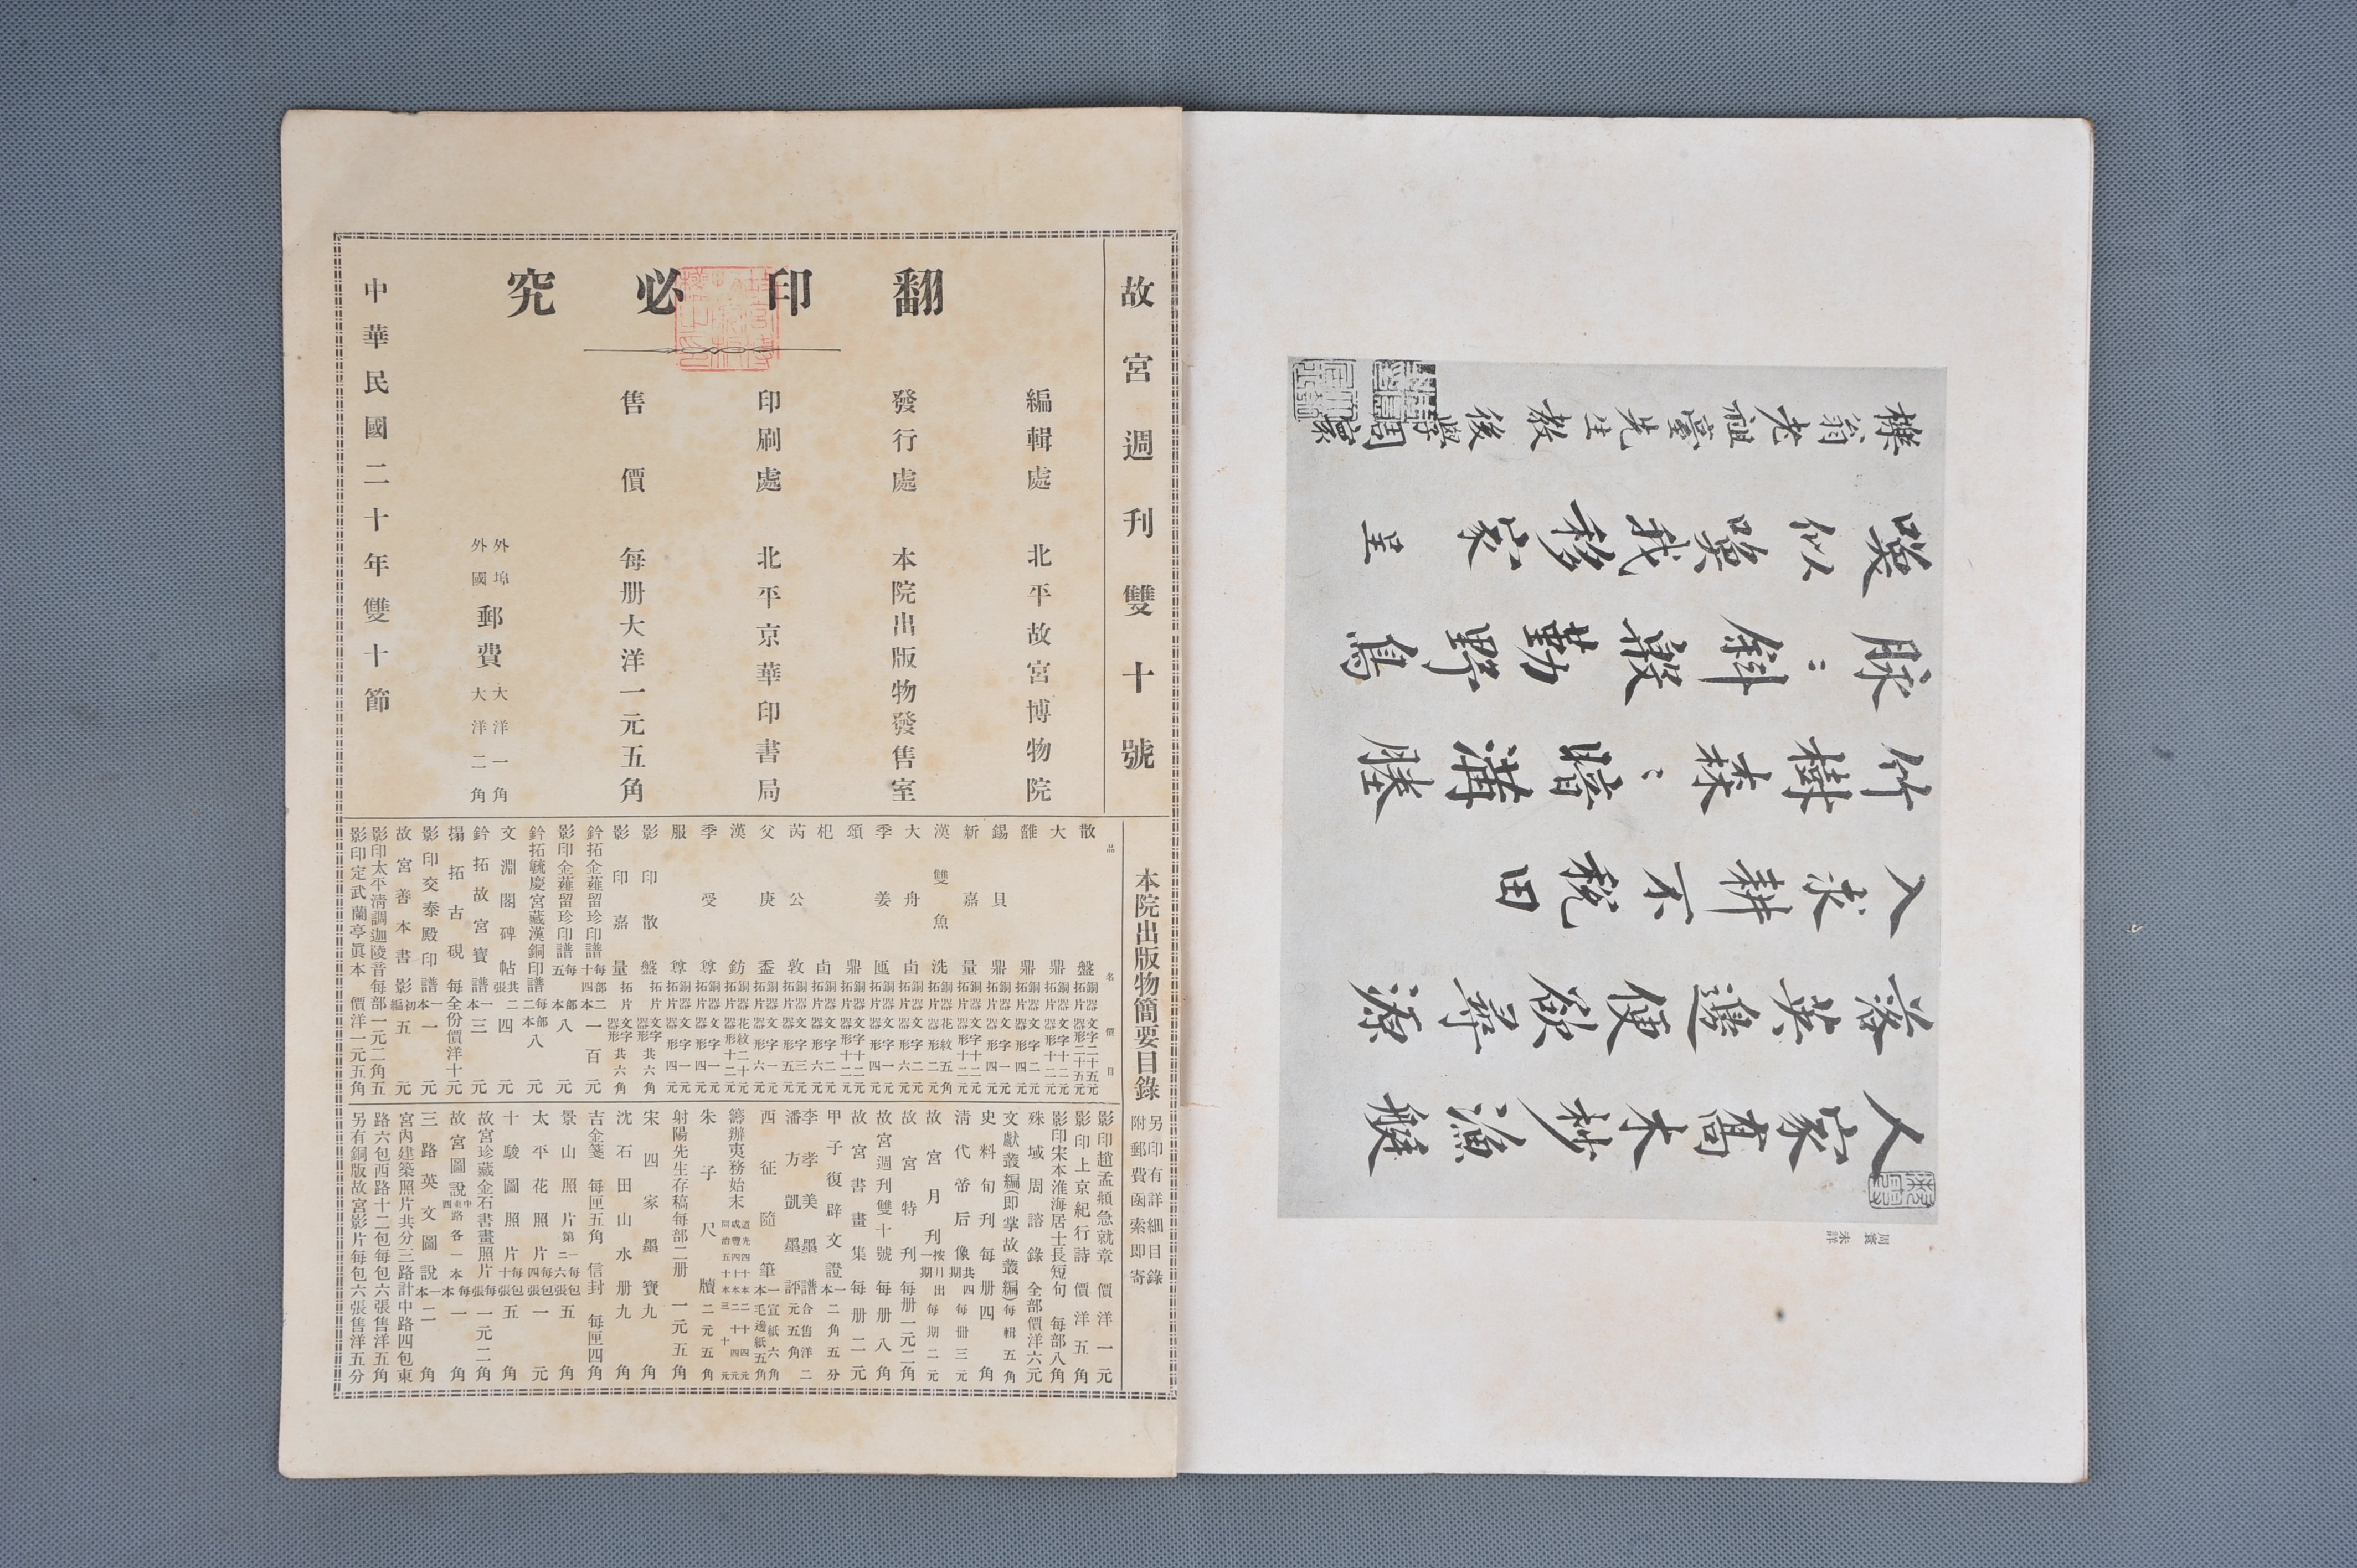 故宮週刊雙十號
翻印必究
編輯處 北平故宮博物院
發行處 本院出版物發售室
印刷處 北平京華印書局
售價 每册大洋一元五角
外埠 外國 郵費 大洋一角 大洋二角
中華民國二十年雙十節
本院出版物簡要目錄
另印有詳細目錄
附郵費函索即寄
品名 價目
散盤 銅器拓片 文字二十五元 器形二十五元
大鼎 銅器拓片 文字十二元 器形十二元
錫貝鼎 銅器拓片 文字一元 器形四元
新嘉量 銅器拓片 文字十二元 器形十二元
漢雙魚洗 銅器拓片 花紋五角 器形二元
大舟卣 銅器拓片 文字二元 器形六元
季姜匜 銅器拓片 文字一元 器形四元
頌鼎 銅器拓片 文字十二元 器形十二元
杞卣 銅器拓片 文字二元 器形六元
芮公敦 銅器拓片 文字三元 器形五元
父庚盉 銅器拓片 文字一元 器形六元
漢鈁 銅器拓片 花紋二十元 器形十二元
季受尊 銅器拓片 文字一元 器形四元
服尊 銅器拓片 文字一元 器形四元
影印散盤 拓片 文字器形 共六角
影印嘉量 拓片 文字器形 共六角
鈐拓金薤留珍印譜 每部二十四本 一百元
影印金薤留珍印譜 每部五本 八元
鈐拓毓慶宮藏漢銅印譜 每部二本 八元
文淵閣碑帖 共二張 四元
鈐拓故宮寶譜 一本 三元
搨拓古硯 每全份價洋十元
影印交泰殿印譜 一本 一元
故宮善本書影 初編 五元
影印太平清調迦陵音每部一元二角五
影印定武蘭亭眞本 價洋一元五角
影印趙孟頫急就章 價洋一元
影印上京紀行詩 價洋五角
影印宋本淮海居士長短句 每部八角
殊域周諮錄 全部價洋六元
文獻叢編(即掌故叢編) 每輯五角
史料旬刊 每册四角
清代帝后像 共四期 每册三元
故宮月刊 按月出一期 每期二元
故宮特刊 每册一元二角
故宮週刊雙十號 每册八角
故宮書畫集 每册二元
甲子復辟文證 一本 二角五分
李孝美墨譜 潘方凱墨評 合售洋二元五角
西征隨筆 一本 宣紙六角 毛邊紙五角
籌辦夷務始末 道光四十本二十四元 咸豐四十本二十四元 同治五十本三十元
朱子尺牘 二元五角
射陽先生存稿每部二册 一元五角
宋四家墨寶 九角
沈石田山水册 九角
吉金箋 每匣五角 信封 每匣四角
景山照片 第一二 每包六張 五角
太平花照片 每包四張 一元
十駿圖照片 每包十張 五角
故宮珍藏金石書畫照片 每張 一元二角
故宮圖說 中東西路各一本 每本 一角
三路英文圖說 一本 二角
宮內建築照片共分三路計中路四包東
路六包西路十二包每包六張售洋五角
另有銅版故宮影片每包六張售洋五分
人家高木杪漁艇
落英邊便欲尋源
入求耕不稅田
竹樹森々暗溝塍
脉々斜殷勤野鳥
喚似喚我移家 呈
櫟翁老祖臺先生教 後學周寰
周寰 未詳